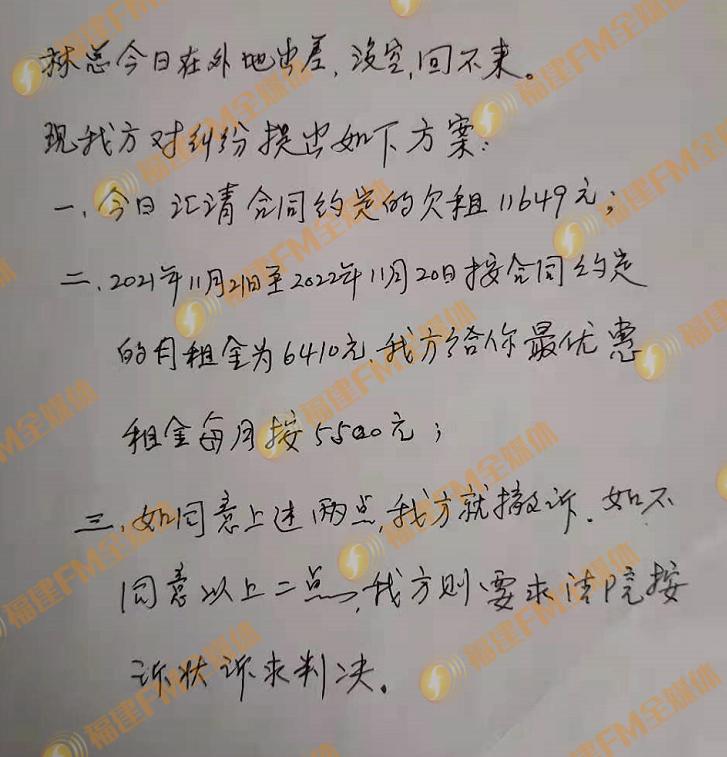 林总今日在外地出差，没空，回不来。
现我方对纠纷提出如下方案：
一、今日汇清合同约定的欠租11649元；
二、2021年11月21日至2022年11月20日按合同约定
的月租金为6410元，我方给你最优惠
租金每月按5500元；
三、如同意上述两点，我方就撤诉。如不
同意以上二点，我方则要求法院按
诉状诉求判决。
福建FM全媒体